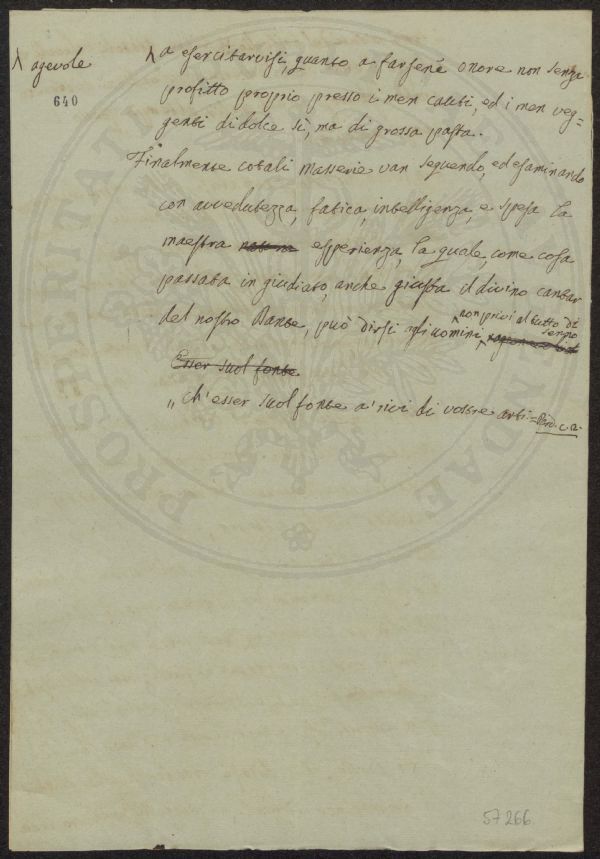 ⋀ agevole
640
⋀ a esercitarvisi, quanto a farsene onore non senza
profitto proprio presso i men cauti, ed i men veg=
genti di dolce sì, ma di grossa pasta.
Finalmente cotali Masserie van seguendo, ed esaminando
con avvedutezza, fatica, intelligenza, e spesa la
maestra esperienza, la quale, come cosa
passata in giudicato, anche giusta il divino cantar
del nostro Dante, può dirsi agli uomini, ⋀ non privi al tutto di
senno
Esser suol fonte
„ ch'esser suol fonte a' rivi di vostre arti = Par. c. 2.
57266
PROSPERITATI